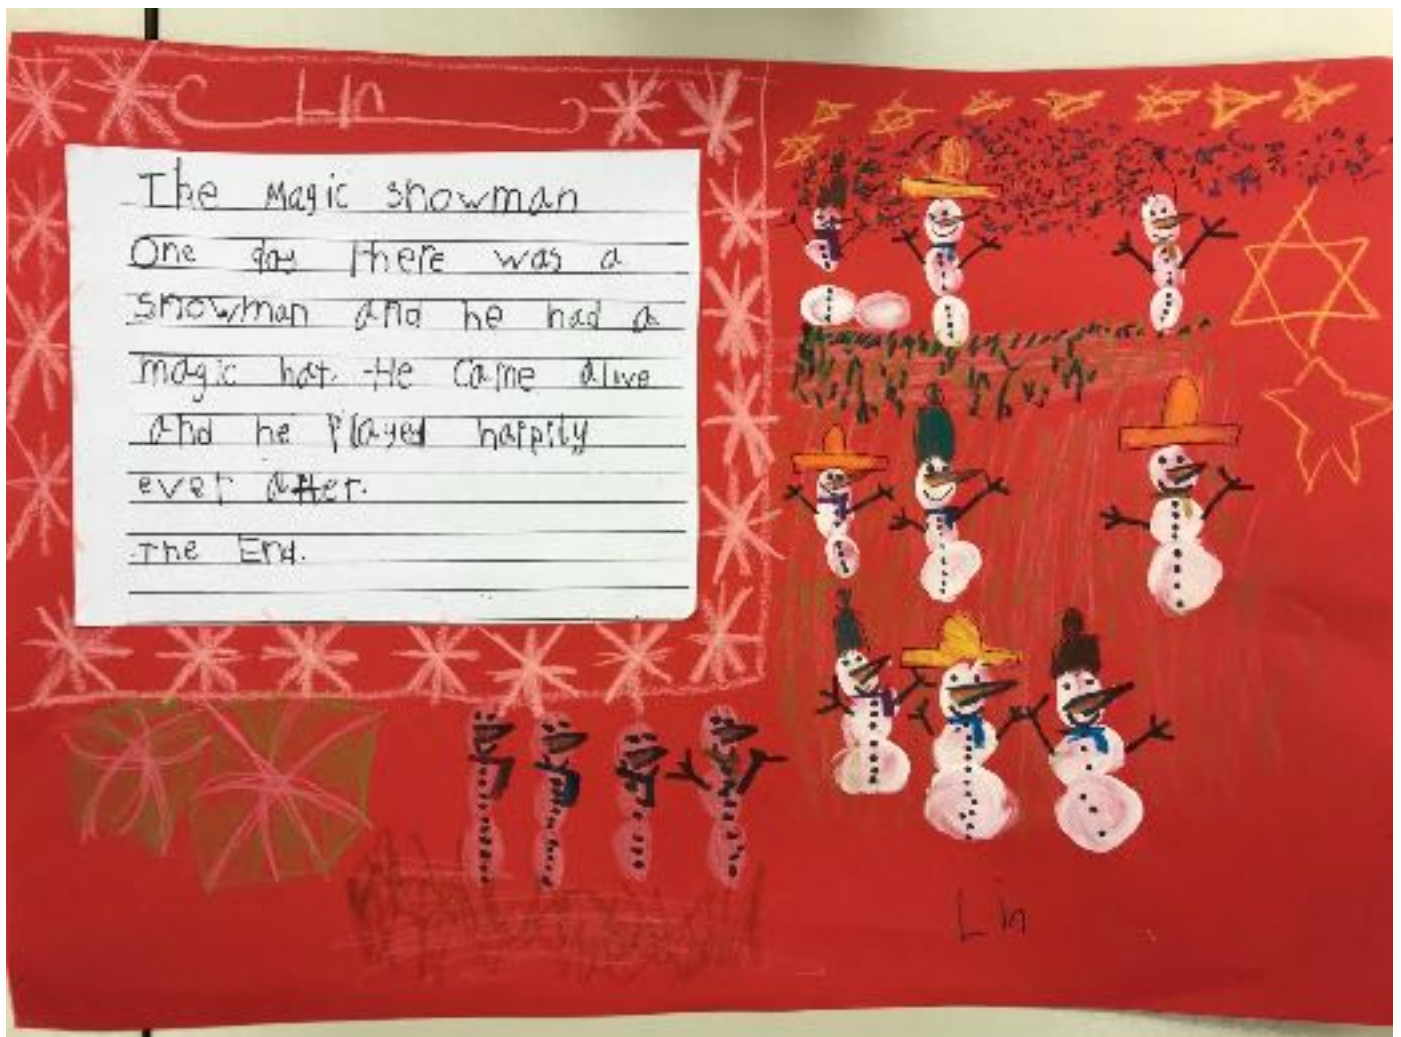 Lin
The Magic snowman
One day there was a
snowman and he had a
magic hat. He came alive
and he played happily
ever after.
The End.
Lin